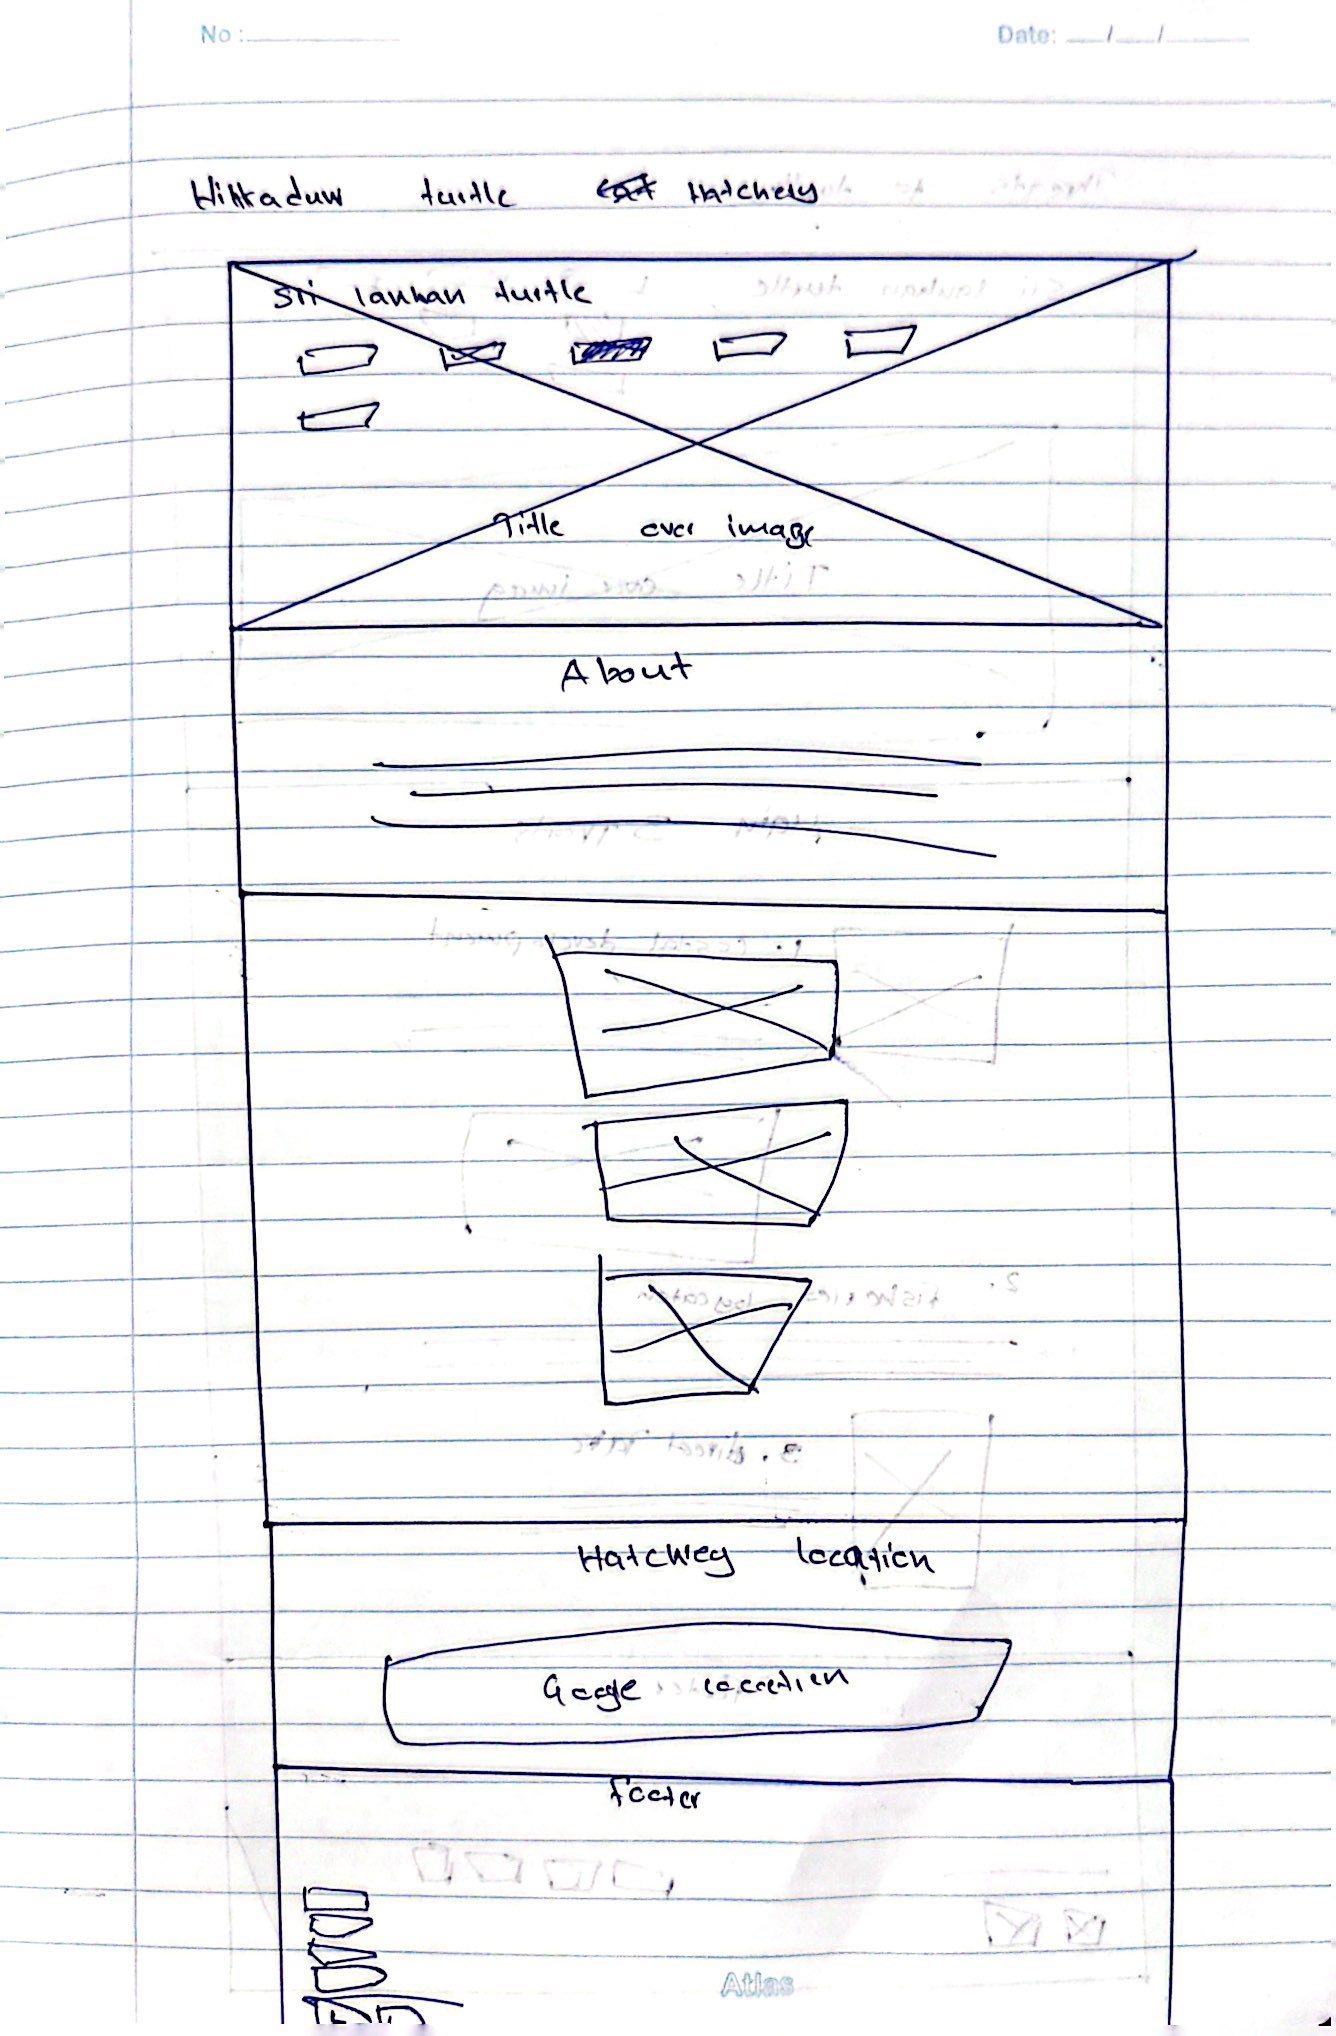 No :
Date: / /
Hikkaduw turtle Hatchery
Sri lankan turtle
Title over image
About
Hatchery location
Googe location
footer
Atlas